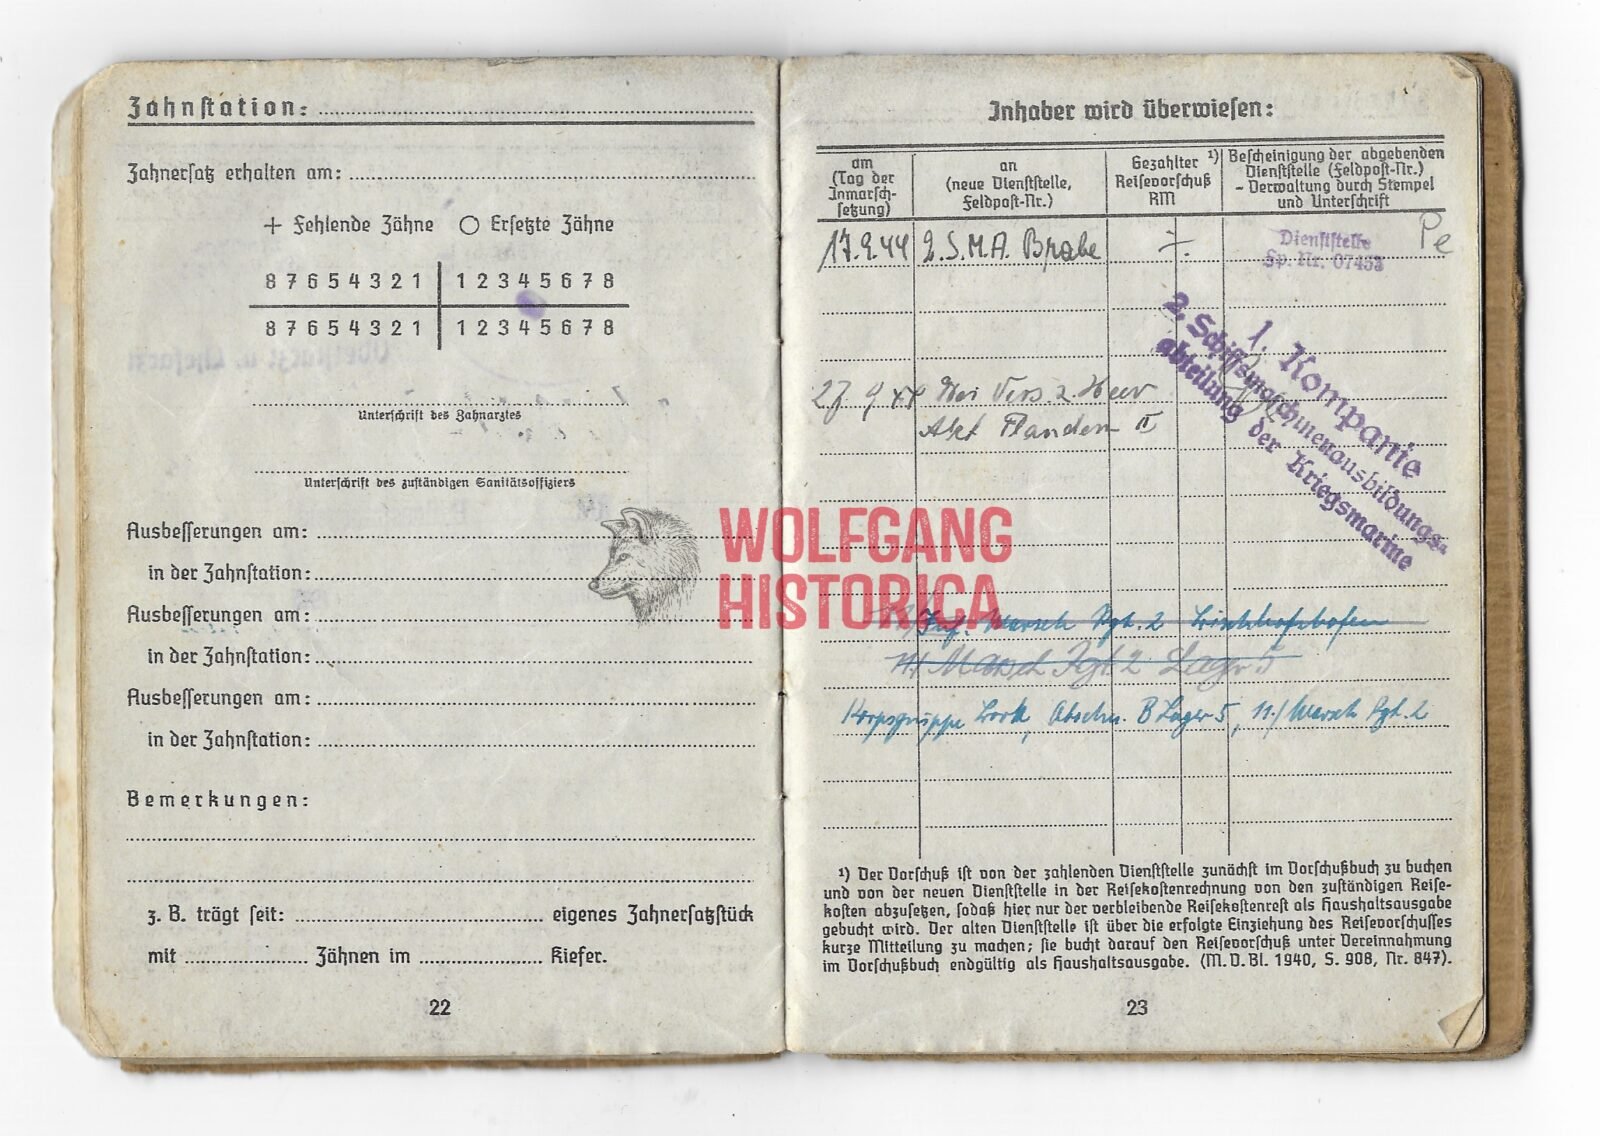 Zahnstation:
Zahnersatz erhalten am:
+ Fehlende Zähne ○ Ersetzte Zähne
8 7 6 5 4 3 2 1 1 2 3 4 5 6 7 8
8 7 6 5 4 3 2 1 1 2 3 4 5 6 7 8
Unterschrift des Zahnarztes
Unterschrift des zuständigen Sanitätsoffiziers
Ausbesserungen am:
in der Zahnstation:
Ausbesserungen am:
in der Zahnstation:
Ausbesserungen am:
in der Zahnstation:
Bemerkungen:
z. B. trägt seit: eigenes Zahnersatzstück
mit Zähnen im Kiefer.
22
Inhaber wird überwiesen:
am
(Tag der
Inmarsch-
setzung)
an
(neue Dienststelle,
Feldpost-Nr.)
Gezahlter ¹)
Reisevorschuß
RM
Bescheinigung der abgebenden
Dienststelle (Feldpost-Nr.)
- Verwaltung durch Stempel
und Unterschrift
17.9.44 2. S.M.A.
Dienststelle
Pe
1. Kompanie
2. Schiffsmaschinenausbildungs-
abteilung der Kriegsmarine
Heer
II
Marsch Rgt. 2
11./ Marsch Rgt. 2 Lager 5
Korpsgruppe B Lager 5, 11./ Marsch Rgt. 2
WOLFGANG
HISTORICA
¹) Der Vorschuß ist von der zahlenden Dienststelle zunächst im Vorschußbuch zu buchen
und von der neuen Dienststelle in der Reisekostenrechnung von den zuständigen Reise-
kosten abzusetzen, sodaß hier nur der verbleibende Reisekostenrest als Haushaltsausgabe
gebucht wird. Der alten Dienststelle ist über die erfolgte Einziehung des Reisevorschusses
kurze Mitteilung zu machen; sie bucht darauf den Reisevorschuß unter Vereinnahmung
im Vorschußbuch endgültig als Haushaltsausgabe. (M.D.Bl. 1940, S. 908, Nr. 847).
23